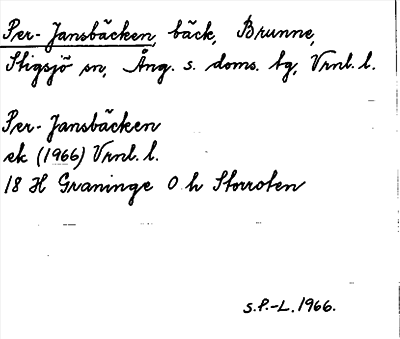 Per-Jansbäcken, bäck, Brunne,
Stigsjö sn, Ång. s. doms. tg, Vrnl. l.
Per-Jansbäcken
ek (1966) Vrnl. l.
18 H Graninge 0 h Storroten
S.P.-L. 1966.